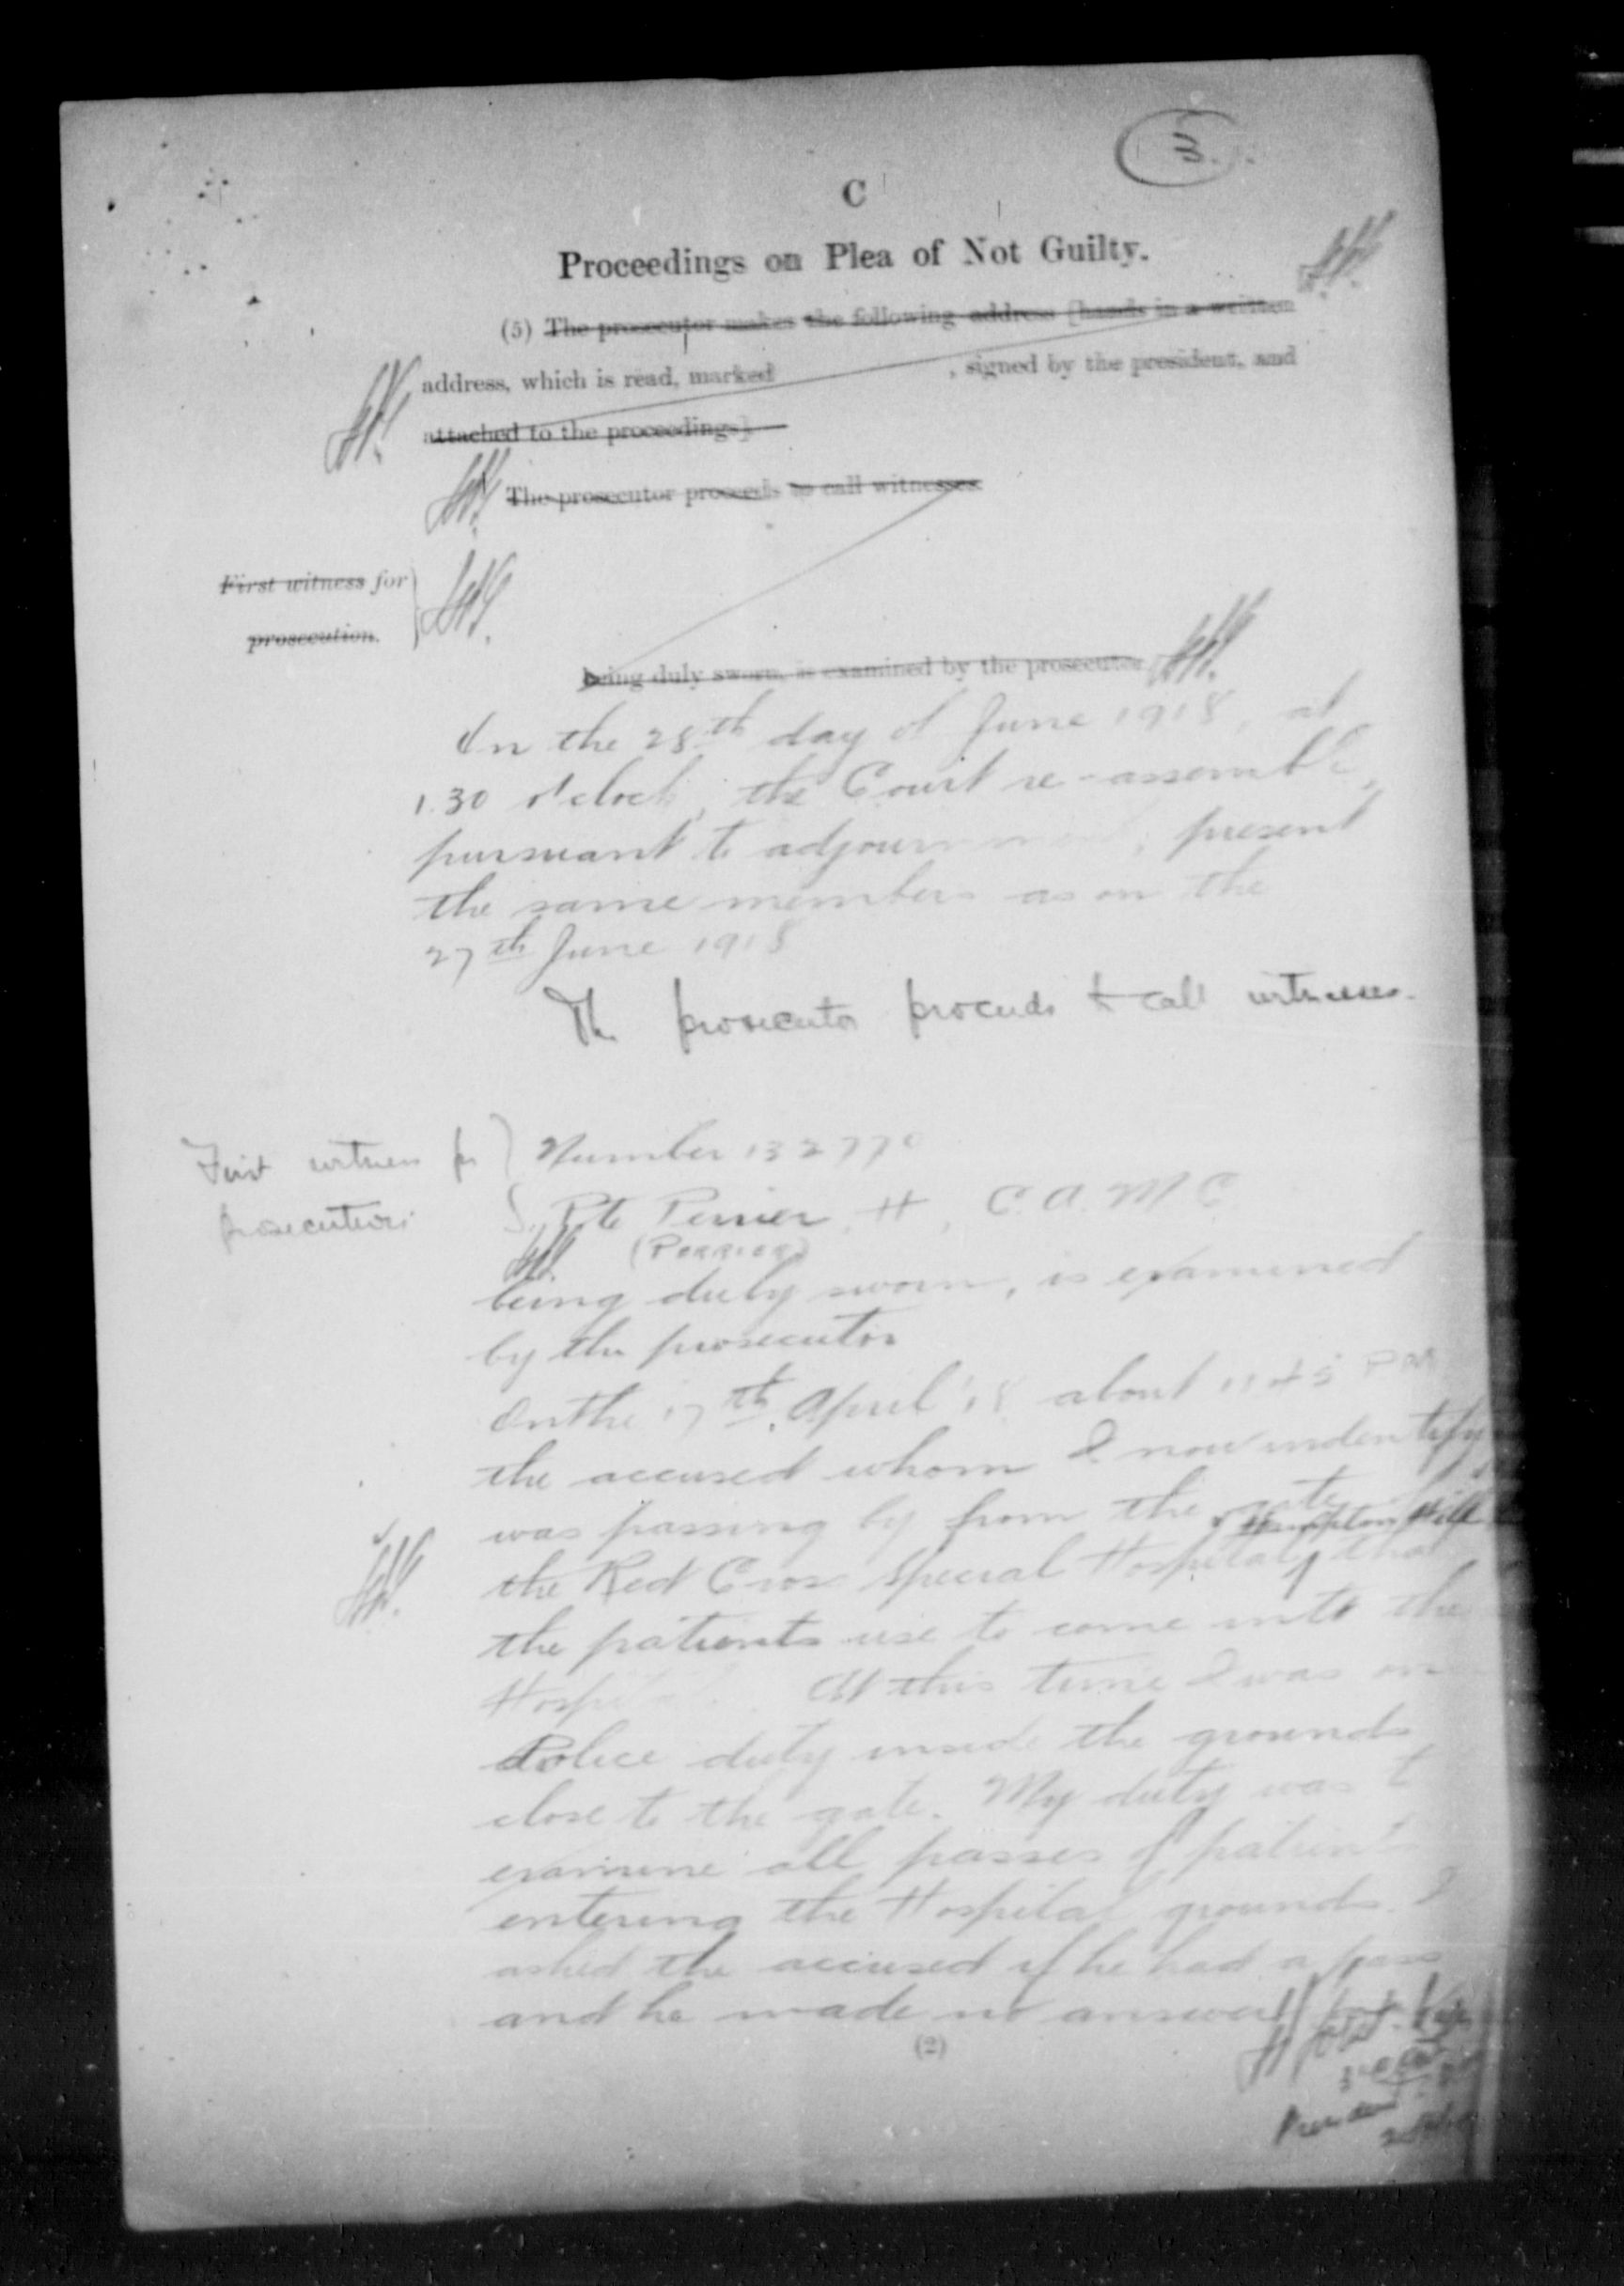 3.
C
Proceedings on Plea of Not Guilty.
(5) The prosecutor makes the following address [hands in a written
address, which is read, marked , signed by the president, and
attached to the proceedings]
The prosecutor proceeds to call witnesses.
First witness for
prosecution.
being duly sworn, is examined by the prosecutor
On the 28th day of June 1918, at
1.30 o'clock, the Court re-assemble,
pursuant to adjournment; present
the same members as on the
27th June 1918
The prosecutor proceeds to call witnesses.
First witness for
prosecution.
Number 132770
Pte Perrier, H, C.A.M.C
(PERRIER)
being duly sworn, is examined
by the prosecutor
On the 17th April '18 about 11.45 PM
the accused whom I now indentify
was passing by from the gate of
Hill
the Red Cross Special Hospital, that
the patients use to come into the
Hospital. At this time I was on
Police duty inside the grounds
close to the gate. My duty was to
examine all passes of patients
entering the Hospital grounds. I
asked the accused if he had a pass
and he made no answer
(2)